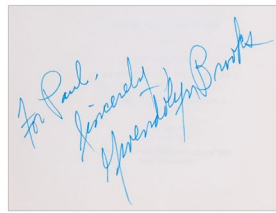 For Paul,
Sincerely
Gwendolyn Brooks